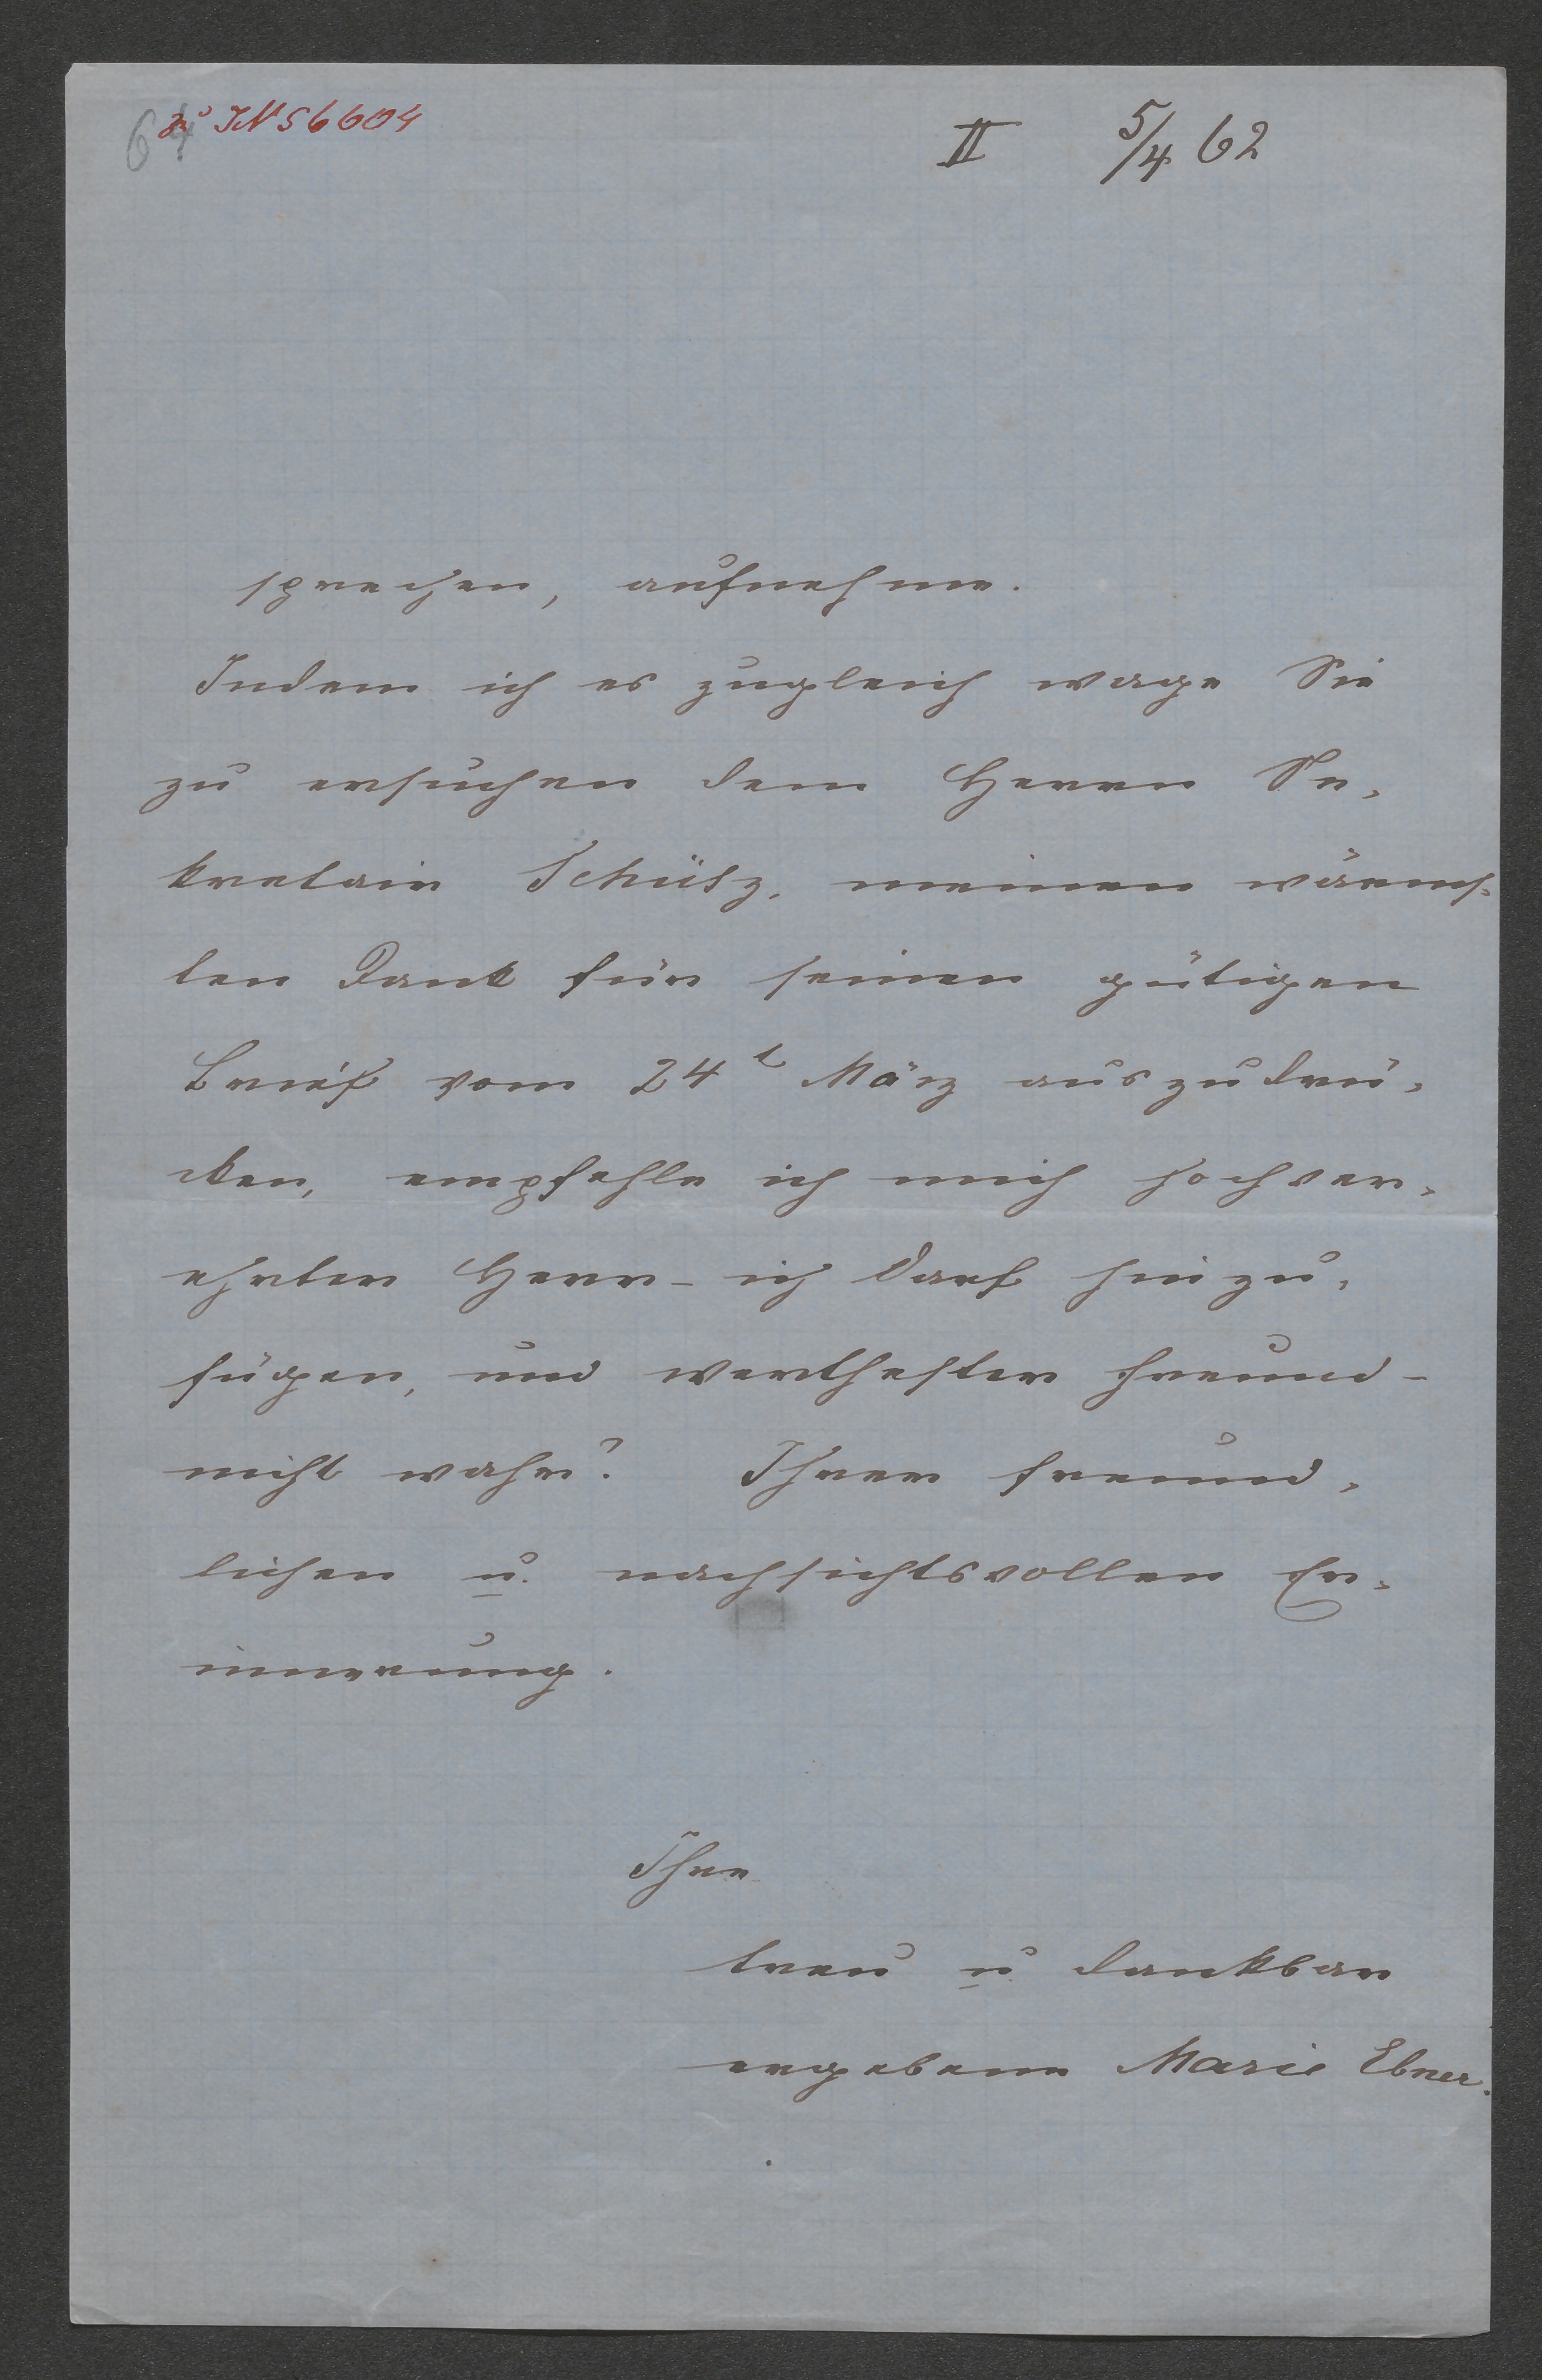 64
zu IN 56604
II 5/4 62
sprechen, aufnehme.
Indem ich es zugleich wage Sie
zu ersuchen dem Herrn Se-
kretair Schütz, meinen wärms-
ten Dank für seinen gütigen
Brief vom 24t März auszudrü-
cken, empfehle ich mich hochver-
ehrter Herr – ich darf hinzu-
fügen, und werthester Freund –
nicht wahr? Ihrer freund-
lichen u. nachsichtsvollen Er-
innerung.
Ihre
treu u. dankbar
ergebene Marie Ebner.